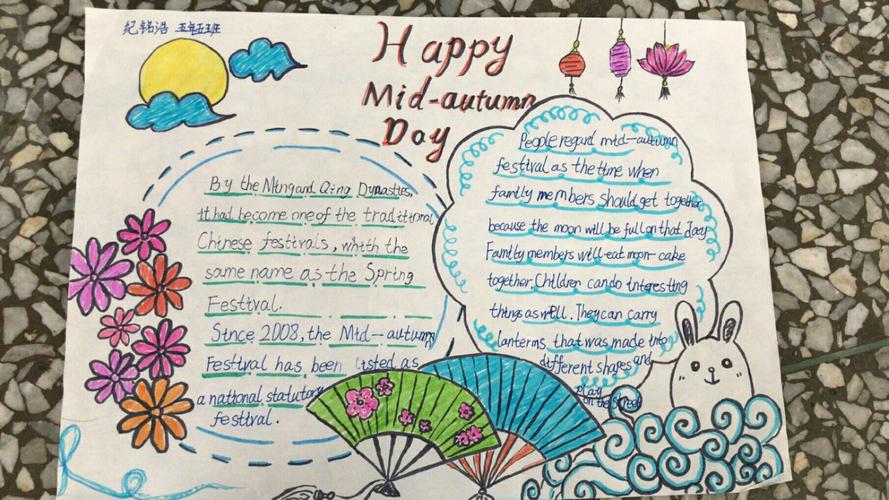 纪铭浩 五年五班
Happy
Mid-autumn
Day
By the Ming and Qing Dynasties,
it had become one of the traditional
Chinese festivals, whith the
same name as the Spring
Festival.
Since 2008, the Mid--autumn
Festival has been listed as
a national statutory
festival.
People regard mid--autumn
festival as the time when
family members should get together
because the moon will be full on that day
Family members will eat moon-cake
together. Children can do interesting
things as well. They can carry
lanterns that was made into
different shapes and
play
on the street